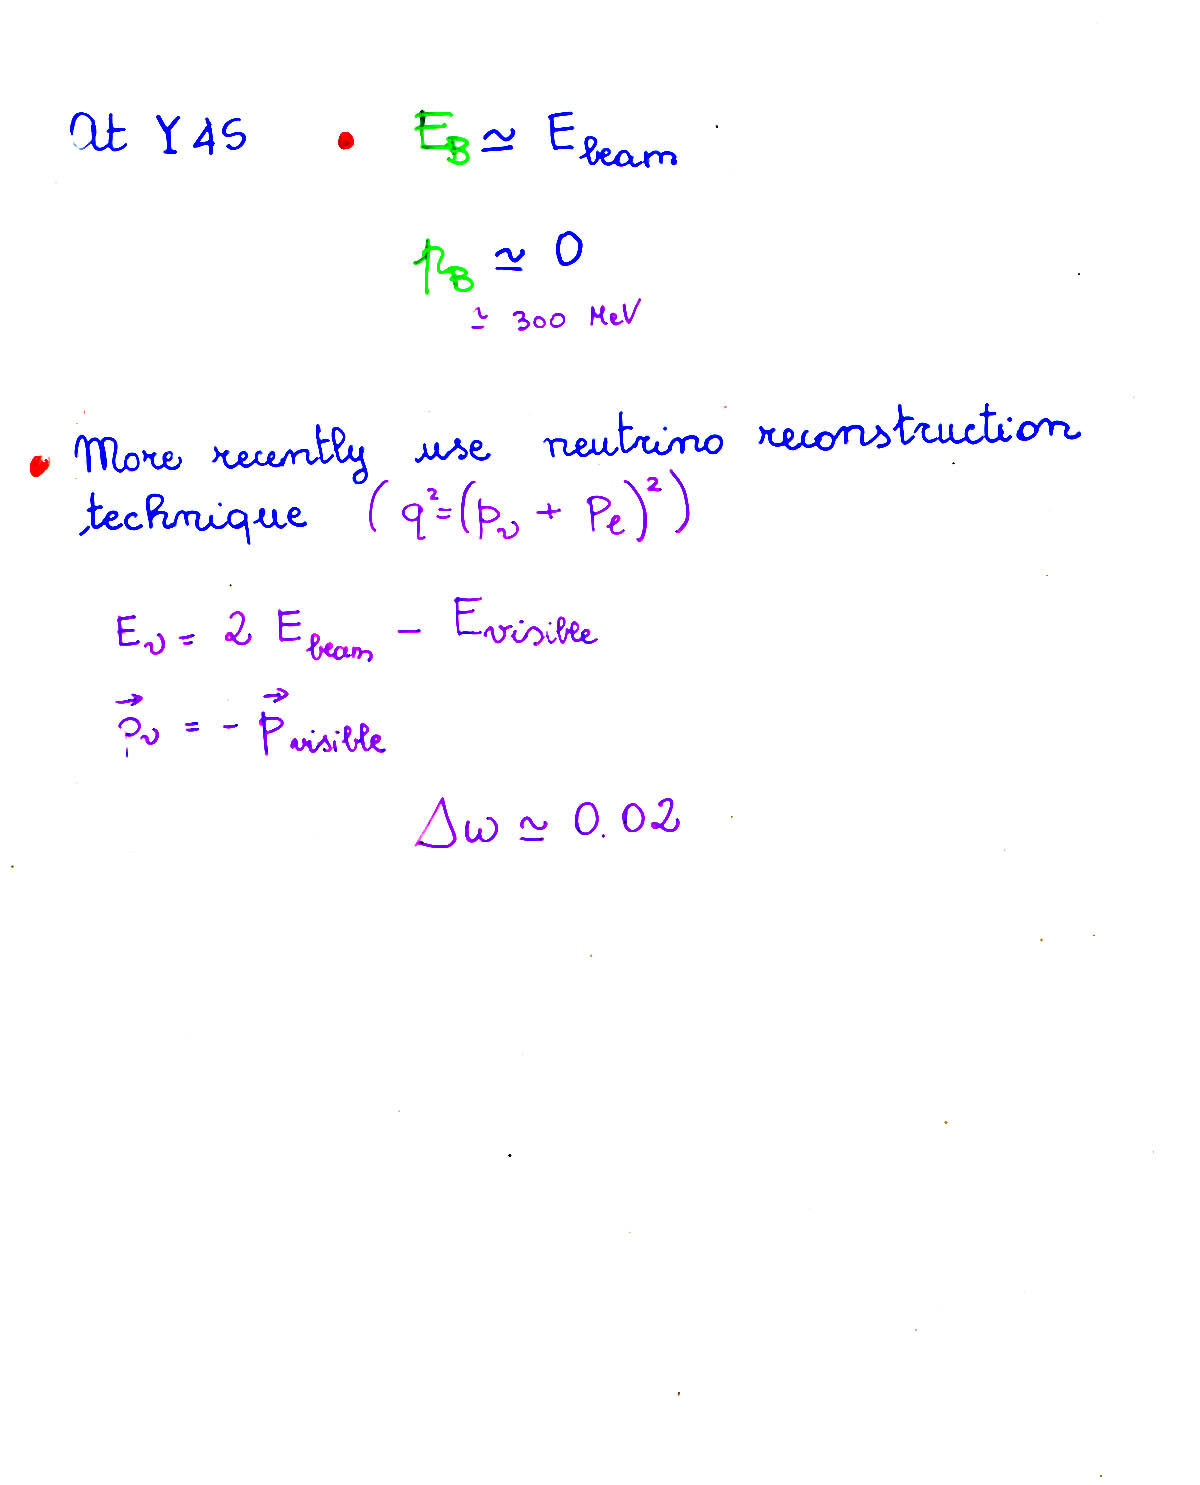 At Υ4S • E_B ≃ E_beam
p_B ≃ 0
≃ 300 MeV
• More recently use neutrino reconstruction
technique (q²=(p_ν + P_e)²)
E_ν = 2 E_beam - E_visible
p⃗_ν = - p⃗_visible
Δw ≃ 0.02